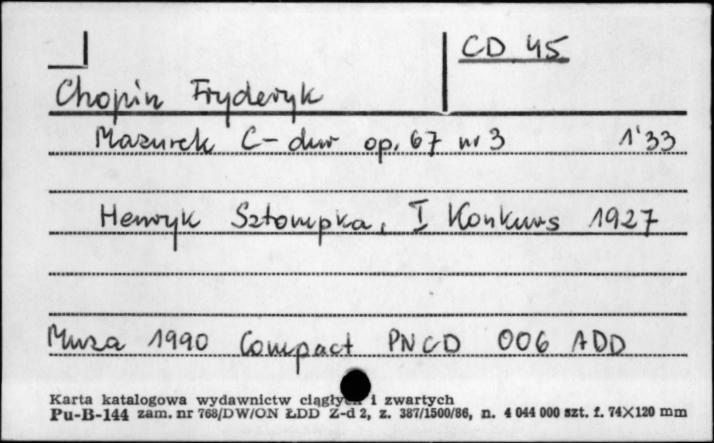 CD 45
Chopin Fryderyk
Mazurek C-dur op. 67 nr 3 1'33
Henryk Sztompka, I Konkurs 1927
Muza 1990 Compact PNCD 006 ADD
Karta katalogowa wydawnictw ciągłych i zwartych
Pu-B-144 zam. nr 768/DW/ON ŁDD Z-d 2, z. 387/1500/86, n. 4 044 000 szt. f. 74×120 mm